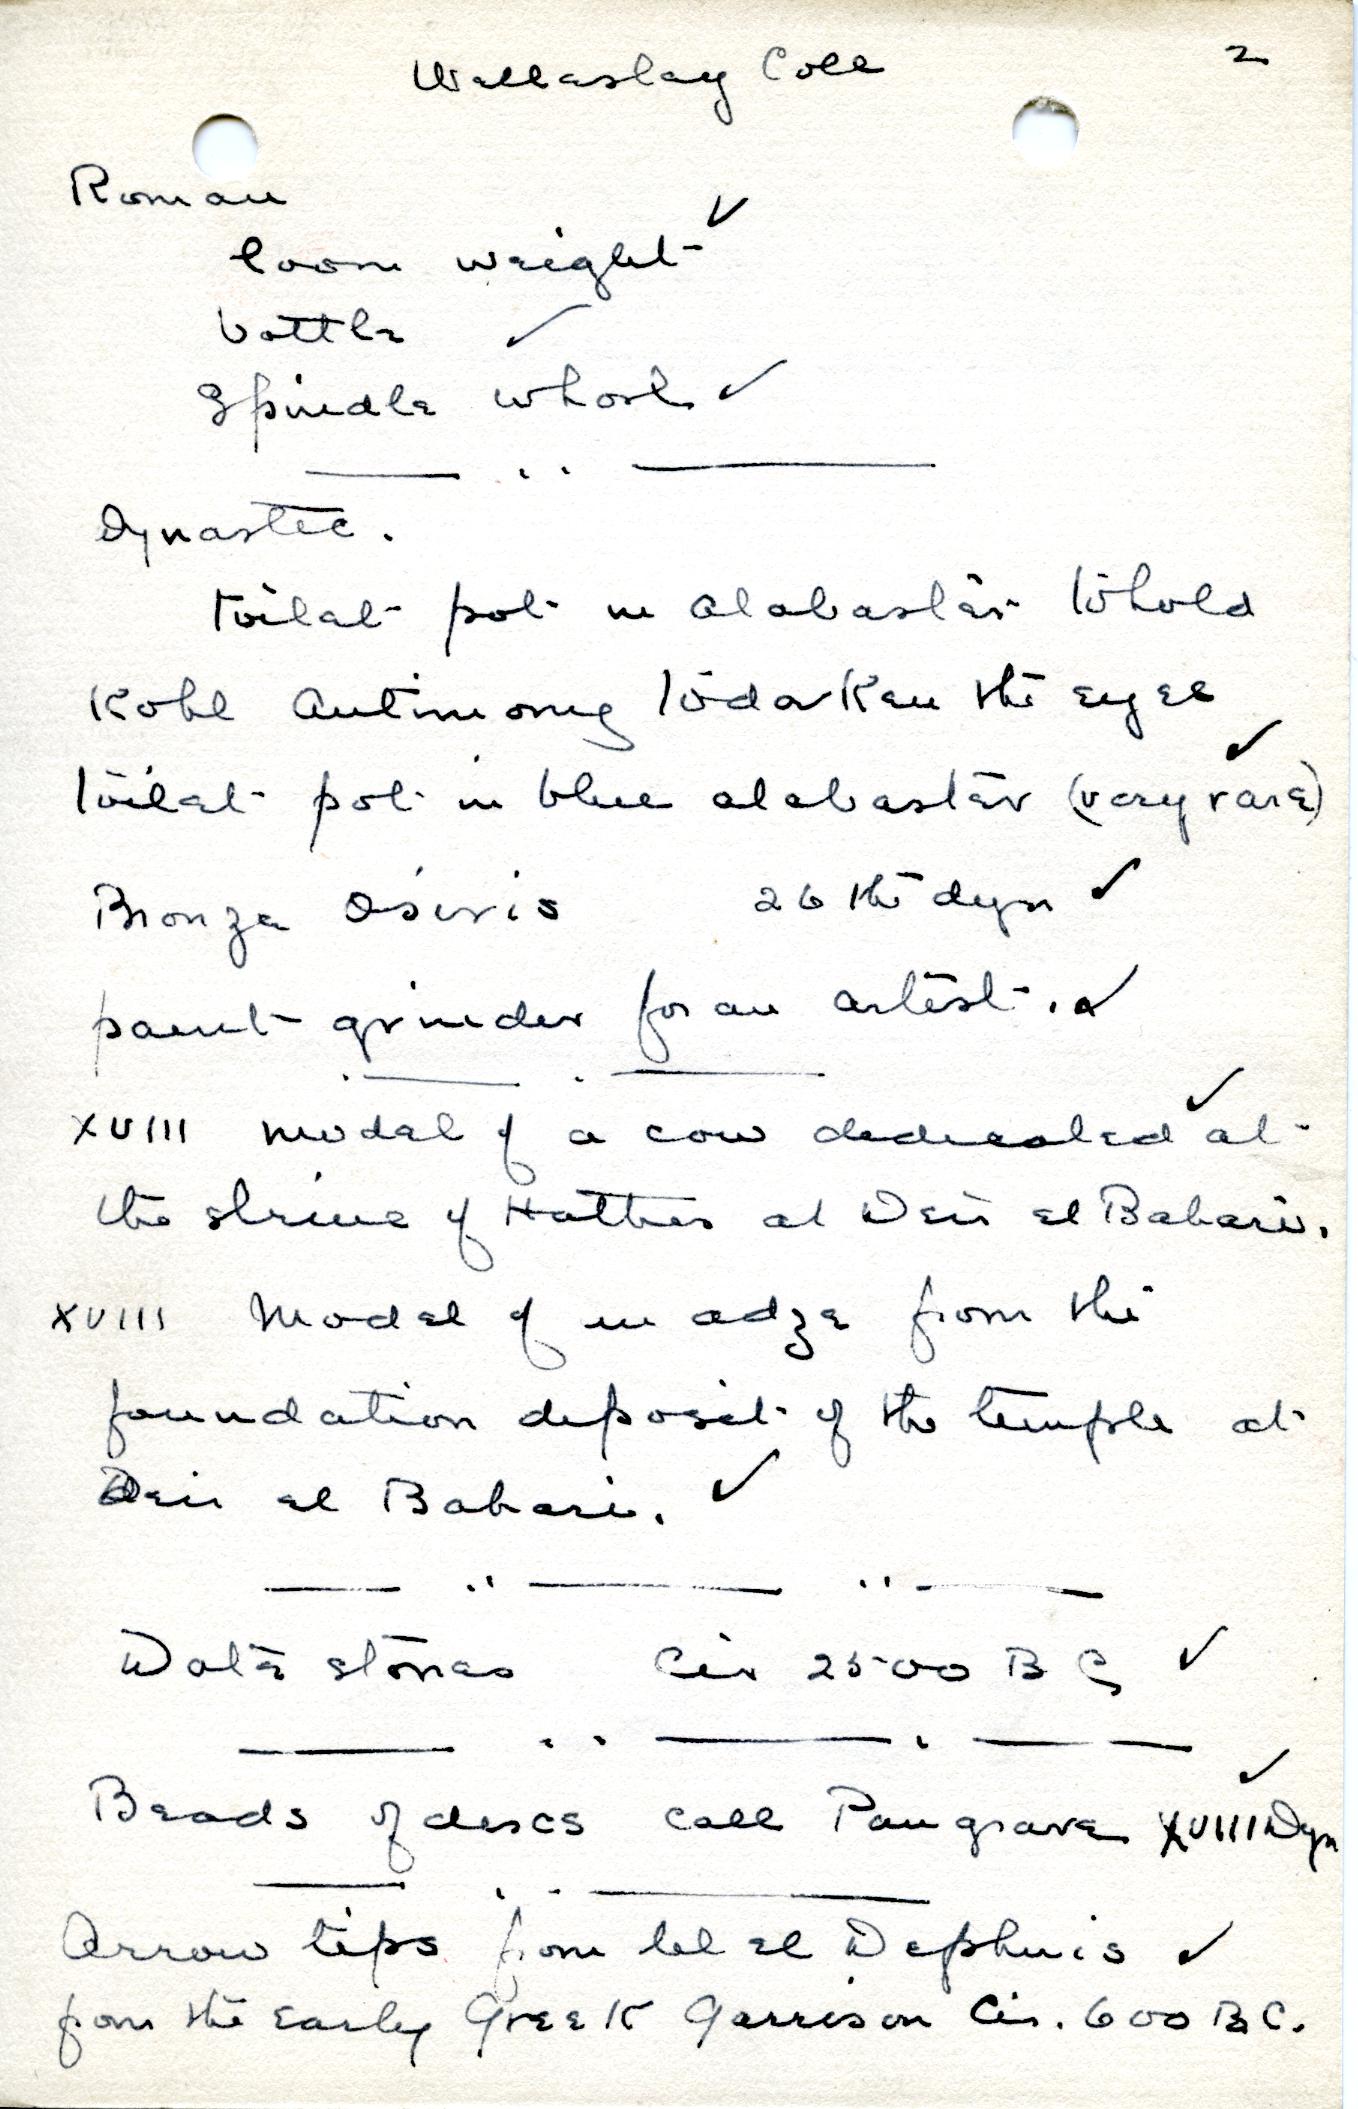 Wallaslay Coll 2
Roman
loom weight ✓
bottle ✓
Spindle whorl ✓
Dynastic.
toilet pot in alabaster to hold
Kohl Antimony to darken the eyes
toilet pot in blue alabaster (very rare) ✓
Bronze Osiris 26 the dyn ✓
paint grinder for an artist. ✓
XVIII model of a cow dedicated at ✓
the shrine of Hathor at Deir el Bahari.
XVIII Model of an adze from the
foundation deposit of the temple at
Deir el Bahari. ✓
Date stones Cir 2500 B C ✓
Beads of discs call Pangrave XVIII Dyn ✓
Arrow tips from tel el Dephnis ✓
from the early Greek Garrison Cir. 600 B.C.